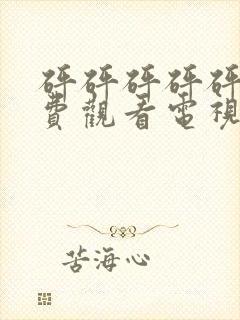 砰砰砰砰砰
費觀看電視
苦海心